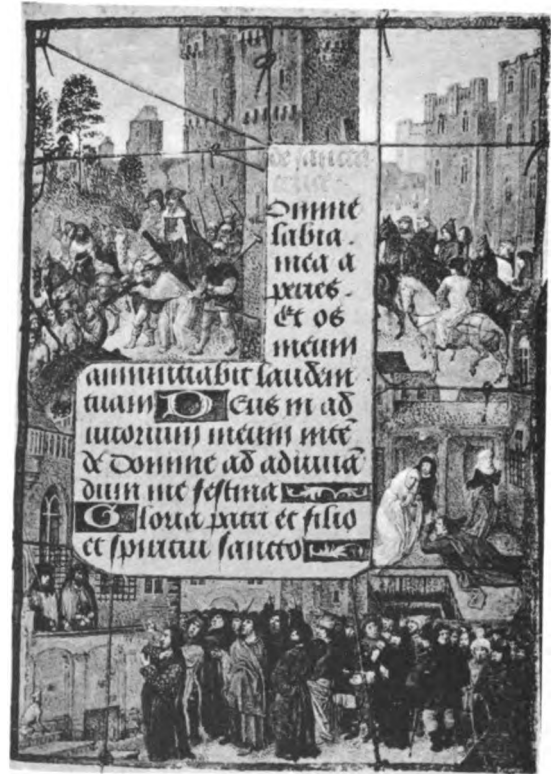 de sancta
cruce.
Domine
labia.
mea a
peries.
Et os
meum
annunciabit laudem
tuam Deus in ad
iutorium meum inte
de domine ad adiuuā
dum me festina
Gloria patri et filio
et spiritui sancto